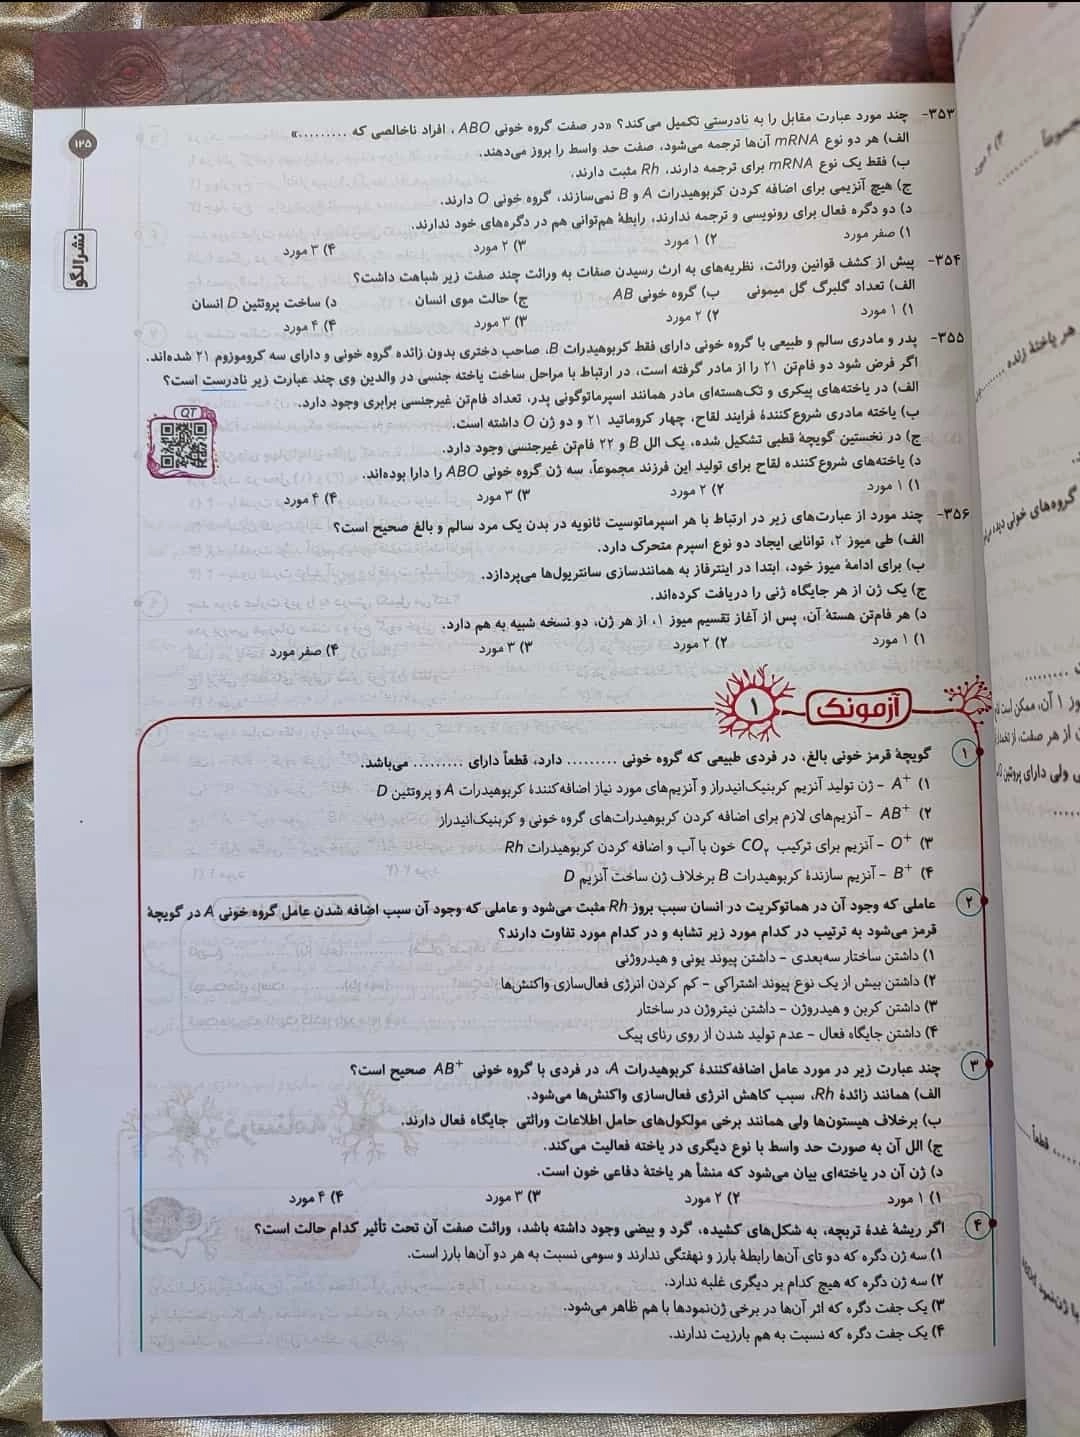 ۱۲۵
نشر الگو
۳۵۳- چند مورد عبارت مقابل را به نادرستی تکمیل می‌کند؟ «در صفت گروه خونی ABO ، افراد ناخالصی که .........»
الف) هر دو نوع mRNA آن‌ها ترجمه می‌شود، صفت حد واسط را بروز می‌دهند.
ب) فقط یک نوع mRNA برای ترجمه دارند، Rh مثبت دارند.
ج) هیچ آنزیمی برای اضافه کردن کربوهیدرات A و B نمی‌سازند، گروه خونی O دارند.
د) دو دگره فعال برای رونویسی و ترجمه ندارند، رابطهٔ هم‌توانی هم در دگره‌های خود ندارند.
۱) صفر مورد ۲) ۱ مورد ۳) ۲ مورد ۴) ۳ مورد
۳۵۴- پیش از کشف قوانین وراثت، نظریه‌های به ارث رسیدن صفات به وراثت چند صفت زیر شباهت داشت؟
الف) تعداد گلبرگ گل میمونی ب) گروه خونی AB ج) حالت موی انسان د) ساخت پروتئین D انسان
۱) ۱ مورد ۲) ۲ مورد ۳) ۳ مورد ۴) ۴ مورد
۳۵۵- پدر و مادری سالم و طبیعی با گروه خونی دارای فقط کربوهیدرات B، صاحب دختری بدون زائده گروه خونی و دارای سه کروموزوم ۲۱ شده‌اند.
اگر فرض شود دو فام‌تن ۲۱ را از مادر گرفته است، در ارتباط با مراحل ساخت یاخته جنسی در والدین وی چند عبارت زیر نادرست است؟
الف) در یاخته‌های پیکری و تک‌هسته‌ای مادر همانند اسپرماتوگونی پدر، تعداد فام‌تن غیرجنسی برابری وجود دارد.
ب) یاخته مادری شروع‌کنندهٔ فرایند لقاح، چهار کروماتید ۲۱ و دو ژن O داشته است.
ج) در نخستین گویچهٔ قطبی تشکیل شده، یک الل B و ۲۲ فام‌تن غیرجنسی وجود دارد.
د) یاخته‌های شروع‌کننده لقاح برای تولید این فرزند مجموعاً، سه ژن گروه خونی ABO را دارا بوده‌اند.
QT
۱) ۱ مورد ۲) ۲ مورد ۳) ۳ مورد ۴) ۴ مورد
۳۵۶- چند مورد از عبارت‌های زیر در ارتباط با هر اسپرماتوسیت ثانویه در بدن یک مرد سالم و بالغ صحیح است؟
الف) طی میوز ۲، توانایی ایجاد دو نوع اسپرم متحرک دارد.
ب) برای ادامهٔ میوز خود، ابتدا در اینترفاز به همانندسازی سانتریول‌ها می‌پردازد.
ج) یک ژن از هر جایگاه ژنی را دریافت کرده‌اند.
د) هر فام‌تن هستهٔ آن، پس از آغاز تقسیم میوز ۱، از هر ژن، دو نسخه شبیه به هم دارد.
۱) ۱ مورد ۲) ۲ مورد ۳) ۳ مورد ۴) صفر مورد
آزمونک ۱
۱ گویچهٔ قرمز خونی بالغ، در فردی طبیعی که گروه خونی ......... دارد، قطعاً دارای ......... می‌باشد.
۱) A+ - ژن تولید آنزیم کربنیک‌انیدراز و آنزیم‌های مورد نیاز اضافه‌کنندهٔ کربوهیدرات A و پروتئین D
۲) AB+ - آنزیم‌های لازم برای اضافه کردن کربوهیدرات‌های گروه خونی و کربنیک‌انیدراز
۳) O+ - آنزیم برای ترکیب CO۲ خون با آب و اضافه کردن کربوهیدرات Rh
۴) B+ - آنزیم سازندهٔ کربوهیدرات B برخلاف ژن ساخت آنزیم D
۲ عاملی که وجود آن در هماتوکریت در انسان سبب بروز Rh مثبت می‌شود و عاملی که وجود آن سبب اضافه شدن عامل گروه خونی A در گویچهٔ
قرمز می‌شود به ترتیب در کدام مورد زیر تشابه و در کدام مورد تفاوت دارند؟
۱) داشتن ساختار سه‌بعدی - داشتن پیوند یونی و هیدروژنی
۲) داشتن بیش از یک نوع پیوند اشتراکی - کم کردن انرژی فعال‌سازی واکنش‌ها
۳) داشتن کربن و هیدروژن - داشتن نیتروژن در ساختار
۴) داشتن جایگاه فعال - عدم تولید شدن از روی رنای پیک
۳ چند عبارت زیر در مورد عامل اضافه‌کنندهٔ کربوهیدرات A، در فردی با گروه خونی AB+ صحیح است؟
الف) همانند زائدهٔ Rh، سبب کاهش انرژی فعال‌سازی واکنش‌ها می‌شود.
ب) برخلاف هیستون‌ها ولی همانند برخی مولکول‌های حامل اطلاعات وراثتی جایگاه فعال دارند.
ج) الل آن به صورت حد واسط با نوع دیگری در یاخته فعالیت می‌کند.
د) ژن آن در یاخته‌ای بیان می‌شود که منشأ هر یاختهٔ دفاعی خون است.
۱) ۱ مورد ۲) ۲ مورد ۳) ۳ مورد ۴) ۴ مورد
۴ اگر ریشهٔ غدهٔ تربچه، به شکل‌های کشیده، گرد و بیضی وجود داشته باشد، وراثت صفت آن تحت تأثیر کدام حالت است؟
۱) سه ژن دگره که دو تای آن‌ها رابطهٔ بارز و نهفتگی ندارند و سومی نسبت به هر دو آن‌ها بارز است.
۲) سه ژن دگره که هیچ کدام بر دیگری غلبه ندارد.
۳) یک جفت دگره که اثر آن‌ها در برخی ژن‌نمودها با هم ظاهر می‌شود.
۴) یک جفت دگره که نسبت به هم بارزیت ندارند.
هر یاخته زنده
گروه‌های خونی